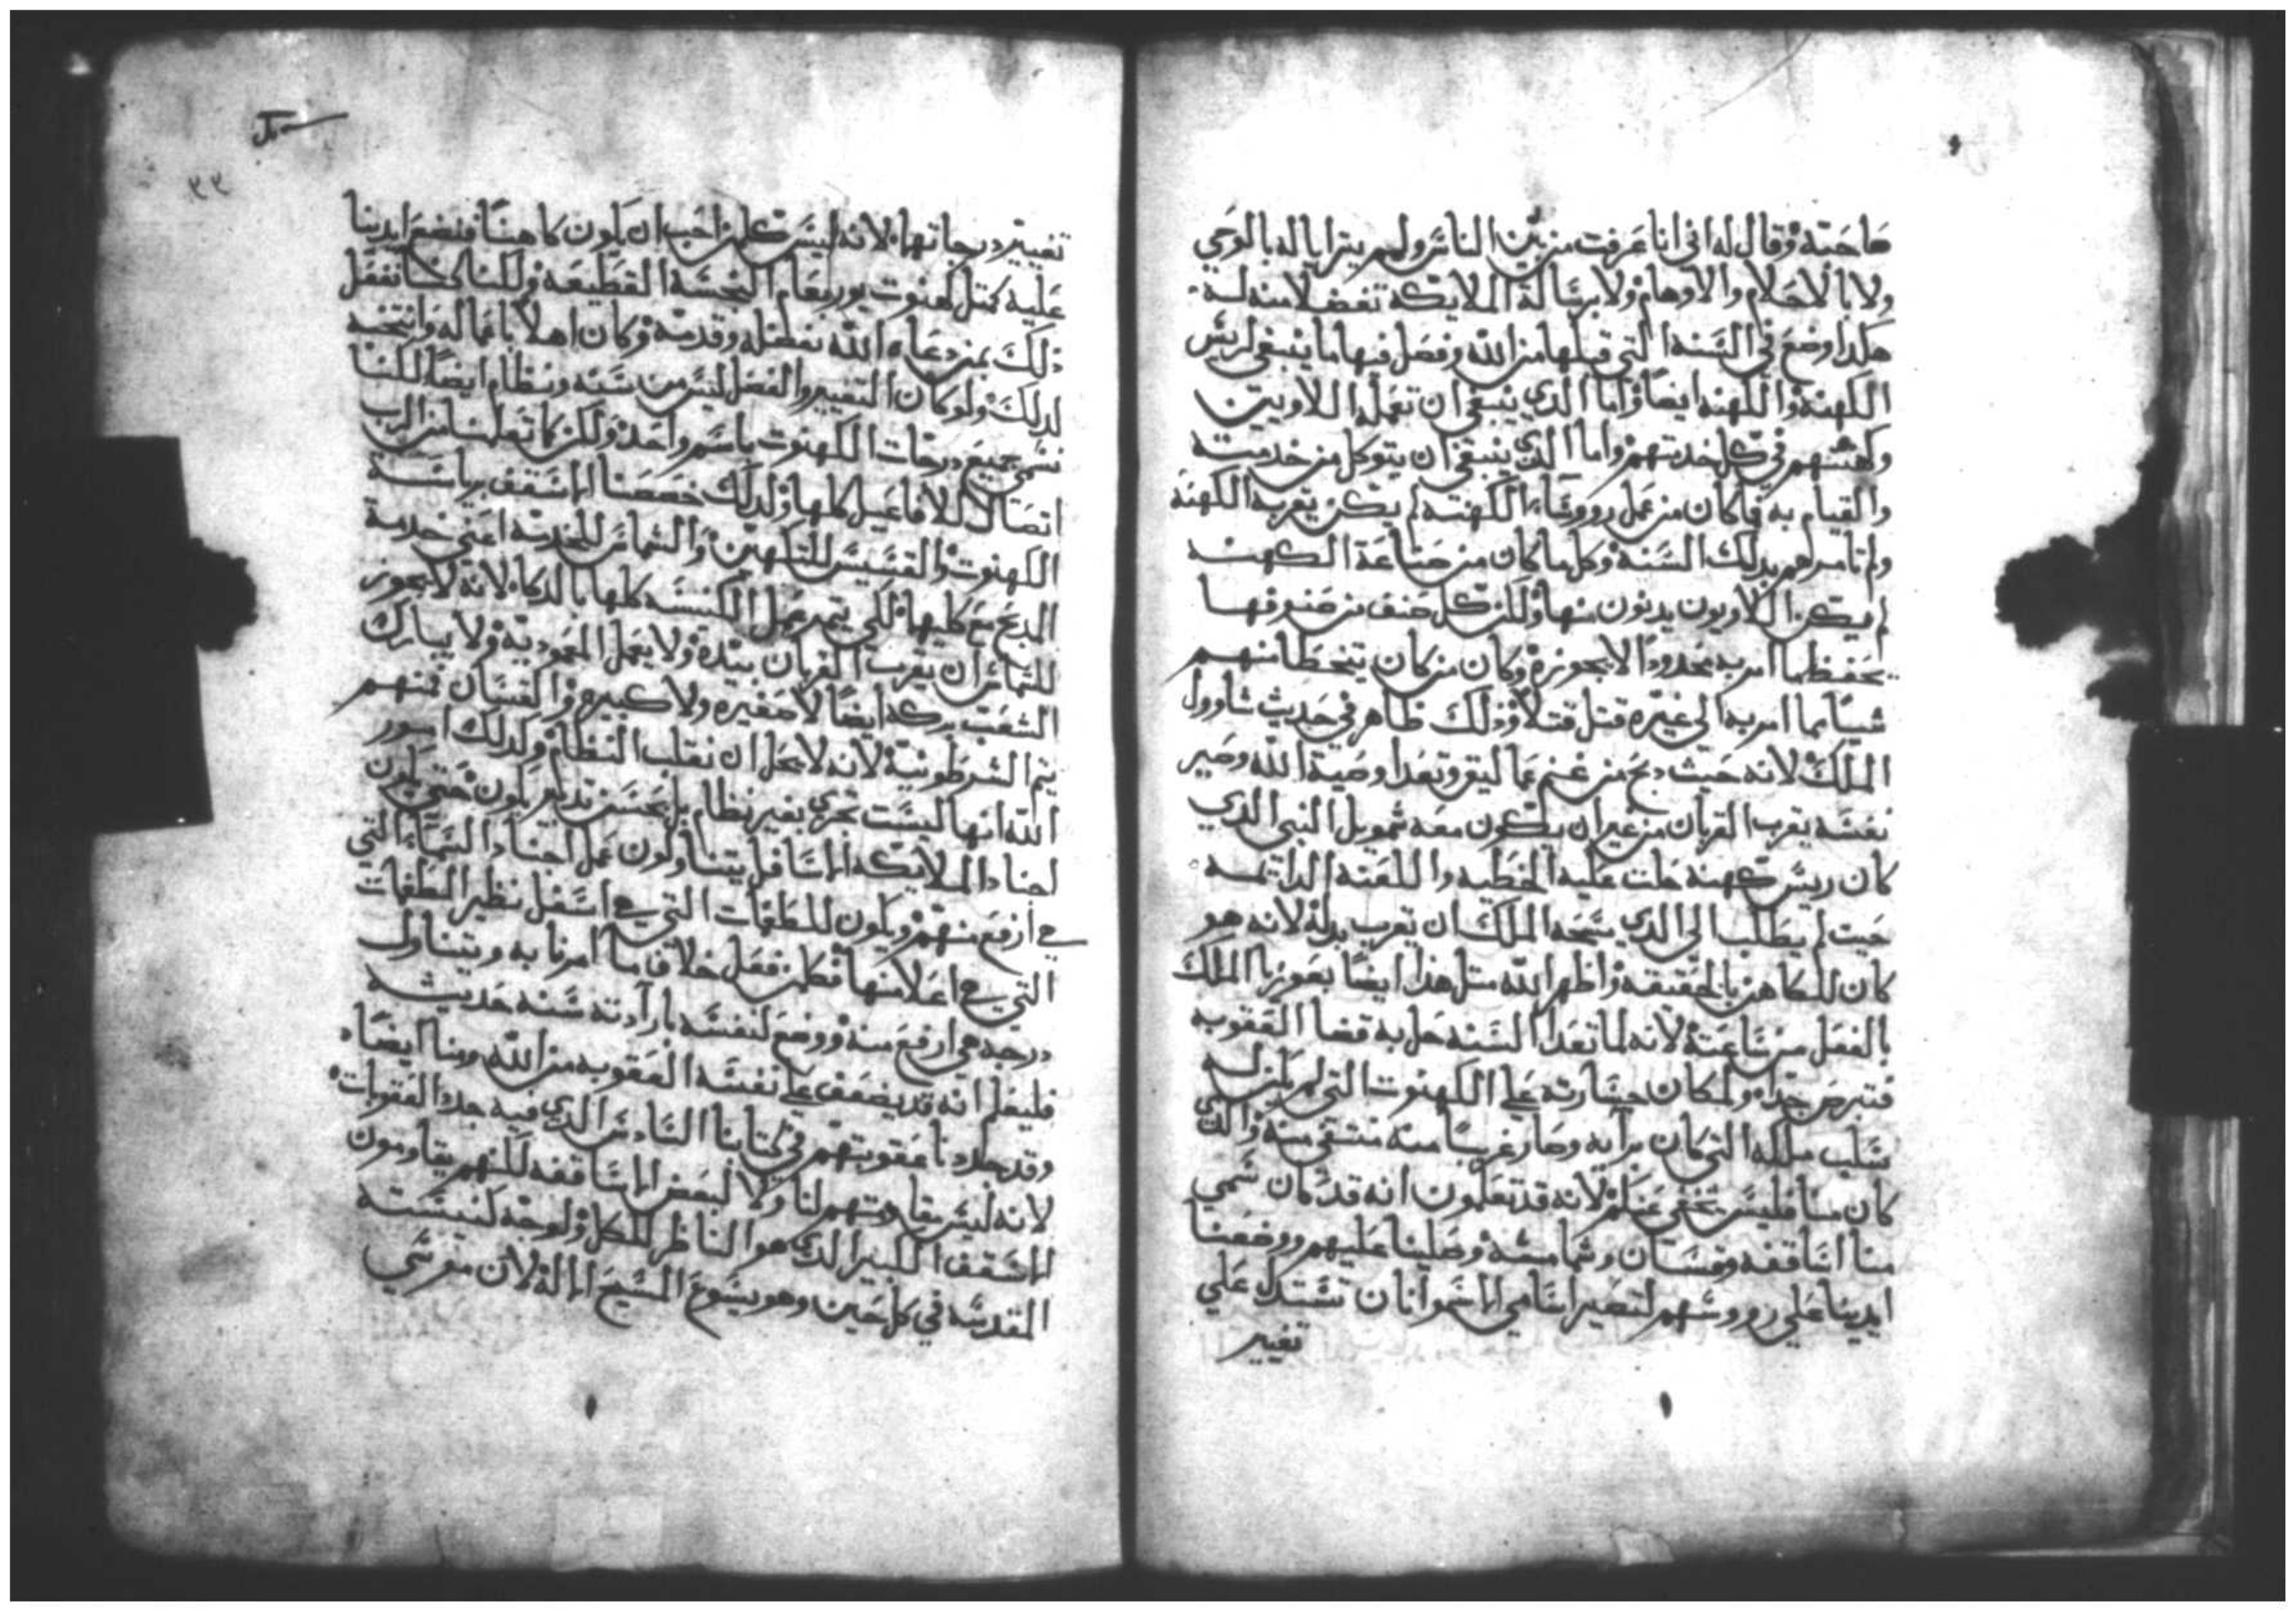 صاحبته وقال له اني انا عرفت من بين الناس ولم يترايا له بالوحي
ولا بالاحلام والاوهام ولا برسالة الملايكة تفضلا منه له
هكدا وضع في السنه التي قبلها من الله وفصل فيها ما ينبغي لريس
الكهنة والكهنه ايضا واما الدي ينبغي ان تعمله اللاويين
وكهنتهم في كل خدمتهم واما الدي ينبغي ان يتوكل من خدمته
والقيام به فما كان من عمل رووساء الكهنة لم يكن يقربه الكهنة
ولم تامرهم بدلك السنة وكل ما كان من صناعة الكهنه
لم يكن اللاويون يدنون منها ولكن كل صنف من صنوفها
يحفظ ما امر به محدودا لا يجوزه وكان من كان يتخطا منهم
شيا مما امر به الي غيره قتل قتلا ودلك ظاهر في حديث شاوول
الملك لانه حيث دبح من غنم عماليق وتعدا وصية الله وصير
نفسه يقرب القربان من غير ان يكون معه شمويل النبي الدي
كان ريس كهنة حلت عليه الخطيه واللعنة الدايمه
حيت لم يطلب الي الدي مسحه الملك ان يقرب بدله لانه هو
كان للكاهن بالحقيقه واظهر الله متل هدا ايضا بعوزيا الملك
بالفعل من ساعته لانه لما تعدا السنه حل به قضا العقوبه
فتبرص جدا ولمكان جسارته علي الكهنوت التي لم يكن له
سلب ملكه التي كان براية وصار غريبا منه منتفي منه والدي
كان منا فليس يخفي عنكم لانه قد تعلمون انه قد كان سمي
منا اساقفه وقسان وشمامسة وصلينا عليهم ووضعنا
ايدينا علي رووسهم لتصير اسامي الاسموانات تستدل علي
تغيير
٣٣
تغيير درجاتها لانه ليس كلمن احب ان يكون كاهنا فنضع ايدينا
عليه كمتل كهنوت يوربعام النجسة القطيعه ولكنا كنا نفعل
دلك بمن دعاه الله بفضله وقدسه وكان اهلا باعماله وانتخبه
لدلك ولو كان التغيير والفصل ليس من سنه ونظام ايضا لكنا
نسمي جميع درجات الكهنوت باسم واحد ولكن كما تعلمنا من الرب
اتصالا للافاعيل كلها ولدلك خصصنا الاسقف برياسة
الكهنوت والقسيس للتكهين والشماس للخدمة اعني خدمة
المدبح مع كليهما لكي يتم عمل الكنيسه كلها بالدكا لانه لا يجوز
للشماس ان يقرب القربان بيده ولا يعمل المعمودية ولا يبارك
الشعب بركه ايضا لا صغيره ولا كبيره والقسان فمنهم
يتم الشرطونية لانه لا يحل ان نقلب النظام ولدلك امور
الله انها ليست تجري بغير نظام بل بحسن تدبير يكون حتي يكون
اجناد الملايكه الاسافل يتناولون عمل اجناد السماء التي
هي ارفع منهم ويكون للطغمات التي هي اسفل نظير الطغمات
التي هي اعلا منها فكلمن فعل خلاف ما امرنا به ويتناول
درجه هي ارفع منه ووضع لنفسه بارآدته سنه حديثه
فليعلم انه قد يضعف علي نفسه العقوبه من الله ومنا ايضا
وقد حددنا عقوبتهم في كتابنا السادس الدي فيه حدد العقوبات
لانه ليس مقاومتهم لنا ولا لبعض الاساقفه لكنهم يقاومون
الاسقف الكبير الدي هو الناظر للكل ولوجة كنيسته
المقدسه في كل حين وهو يشوع المسيح الاله لان موسي